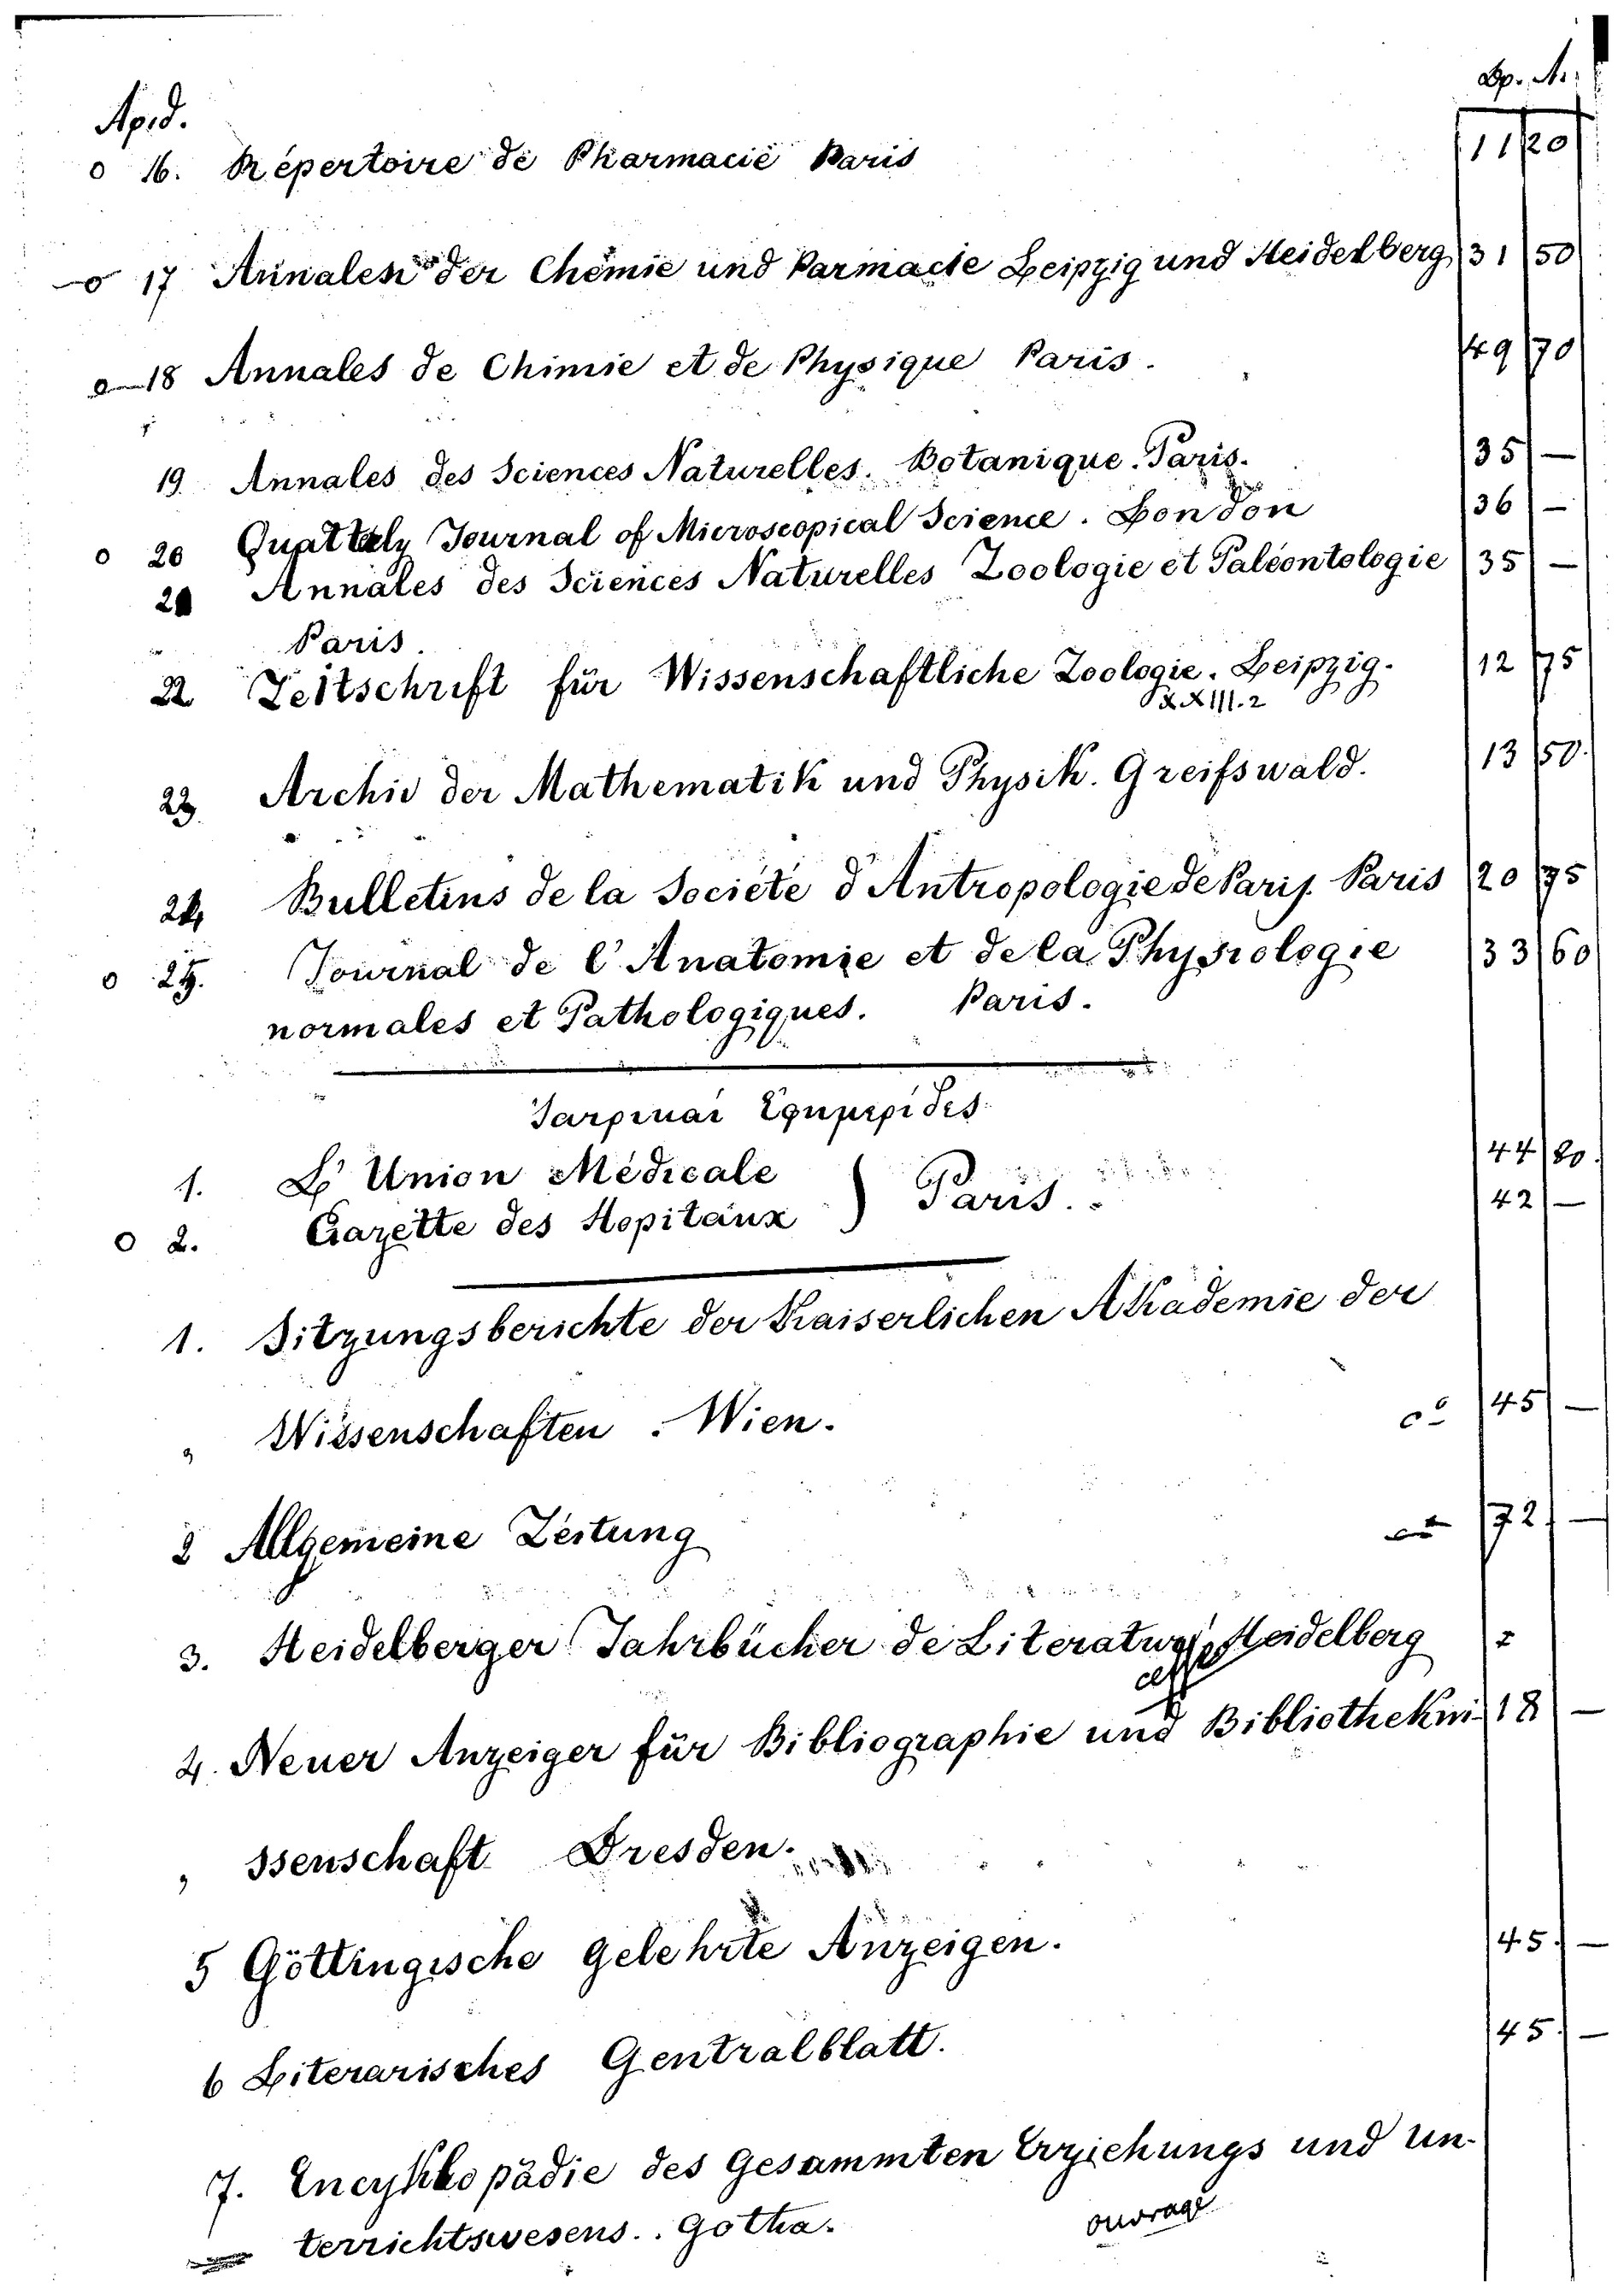 Δρ. Λ.
Αριθ.
ο 16. Répertoire de Pharmacie Paris 11 20
ο 17 Annalen der Chemie und Parmacie Leipzig und Heidelberg 31 50
ο 18 Annales de Chimie et de Physique Paris. 49 70
19. Annales des Sciences Naturelles. Botanique. Paris. 35 —
ο 20 Journal of Microscopical Science. London 36 —
21 Annales des Sciences Naturelles Zoologie et Paléontologie 35 —
Paris.
22 Zeitschrift für Wissenschaftliche Zoologie. Leipzig. 12 75
XXIII.2
23. Archiv der Mathematik und Physik. Greifswald. 13 50.
24 Bulletins de la Societé d'Antropologie de Paris. Paris 20 75
ο 25. Journal de l'Anatomie et de la Physiologie 33 60
normales et Pathologiques. Paris.
Ἰατρικαὶ Ἐφημερίδες
1. L'Union Médicale 44 80.
ο 2. Gazette des Hopitaux ) Paris. 42 —
1. Sitzungsberichte der Kaiserlichen Akademie der
„ Wissenschaften. Wien. 45 —
2 Allgemeine Zeitung 72 —
3. Heidelberger Jahrbücher de Literatur Heidelberg
4. Neuer Anzeiger für Bibliographie und Bibliothekwi- 18 —
„ ssenschaft Dresden.
5 Göttingische gelehrte Anzeigen. 45. —
6 Literarisches Gentralblatt. 45. —
7. Encyklopädie des Gesammten Erziehungs und Un-
terrichtswesens.. Gotha. ouvrage